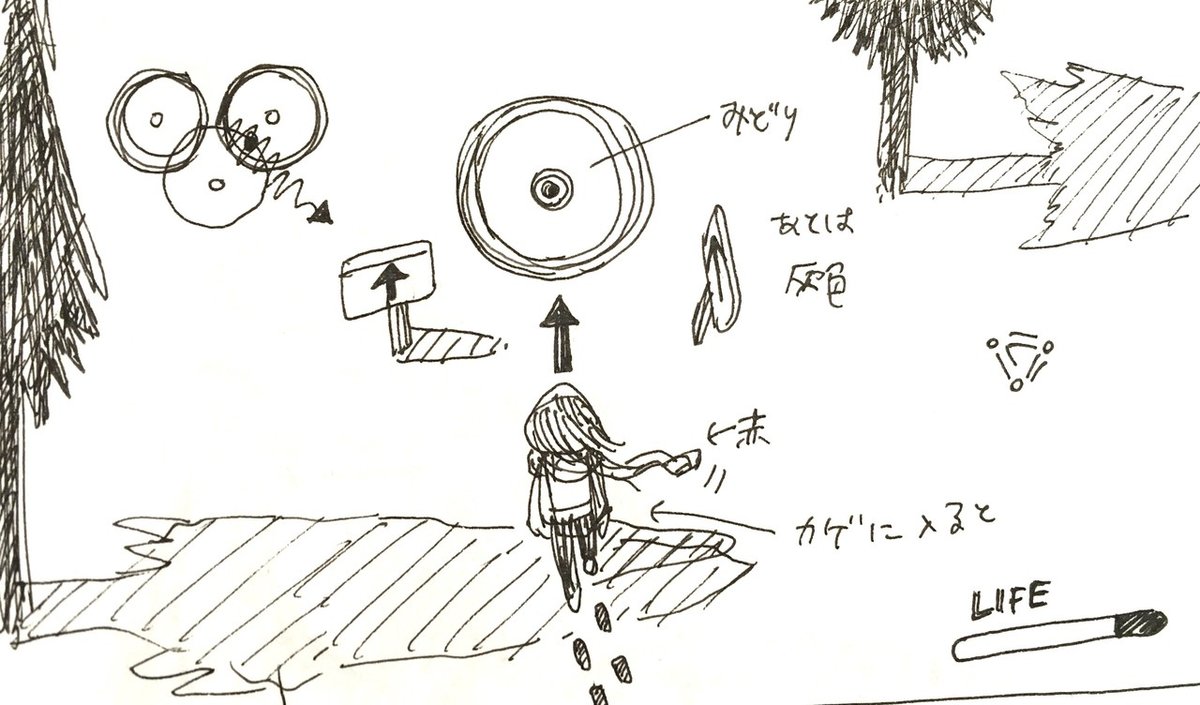 みどり
あとは
灰色
←赤
カゲに入ると
LIFE